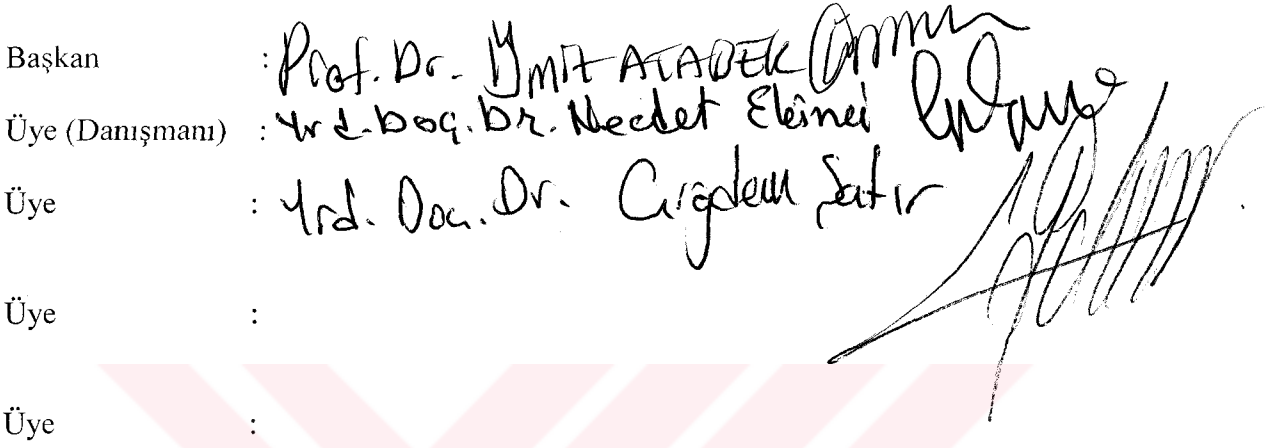 Başkan : Prof. Dr. Ümit ATABEK
Üye (Danışmanı) : Yrd. Doç. Dr. Necdet Ekinci
Üye : Yrd. Doç. Dr. Çiğdem Şatır
Üye :
Üye :